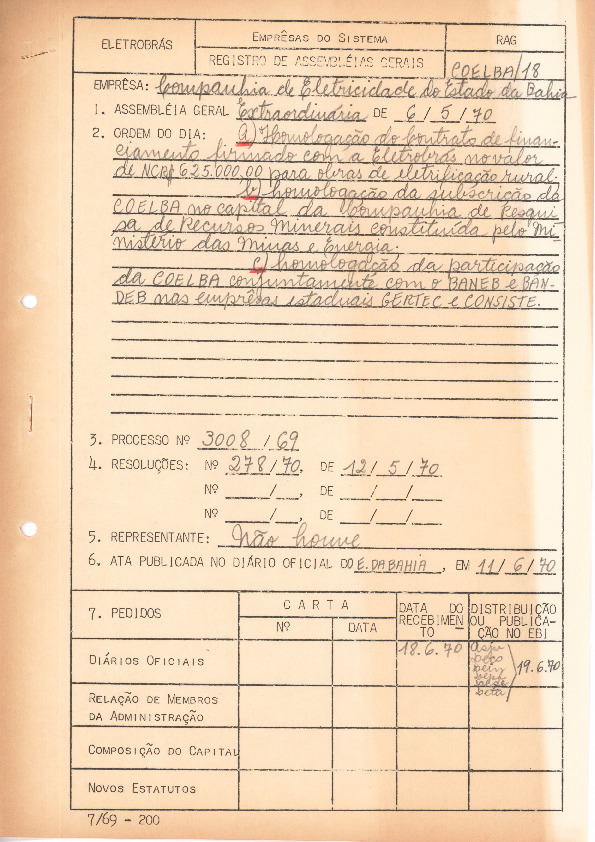 ELETROBRÁS
EMPRÊSAS DO SISTEMA
RAG
REGISTRO DE ASSEMBLÉIAS GERAIS
COELBA/18
EMPRÊSA: Companhia de Eletricidade do Estado da Bahia
1. ASSEMBLÉIA GERAL Extraordinária DE 6/5/70
2. ORDEM DO DIA: a) Homologação do Contrato de finan-
ciamento firmado com a Eletrobrás no valor
de NCR$ 625.000,00 para obras de eletrificação rural.
b) homologação da subscrição da
COELBA no capital da Companhia de Pesqui
sa de Recursos Minerais constituída pelo Mi-
nistério das Minas e Energia.
c) homologação da participação
da COELBA conjuntamente com o BANEB e BAN-
DEB nas emprêsas estaduais CERTEC e CONSISTE.
3. PROCESSO Nº 3008/69
4. RESOLUÇÕES: Nº 278/70, DE 12/5/70
Nº ___/__, DE __/__/__
Nº ___/__, DE __/__/__
5. REPRESENTANTE: Não houve
6. ATA PUBLICADA NO DIÁRIO OFICIAL DO E. DA BAHIA, EM 11/6/70
7. PEDIDOS
CARTA
Nº
DATA
DATA DO
RECEBIMEN
TO
DISTRIBUIÇÃO
OU PUBLICA-
ÇÃO NO EBI
DIÁRIOS OFICIAIS
18.6.70
19.6.70
RELAÇÃO DE MEMBROS
DA ADMINISTRAÇÃO
COMPOSIÇÃO DO CAPITAL
NOVOS ESTATUTOS
7/69 - 200